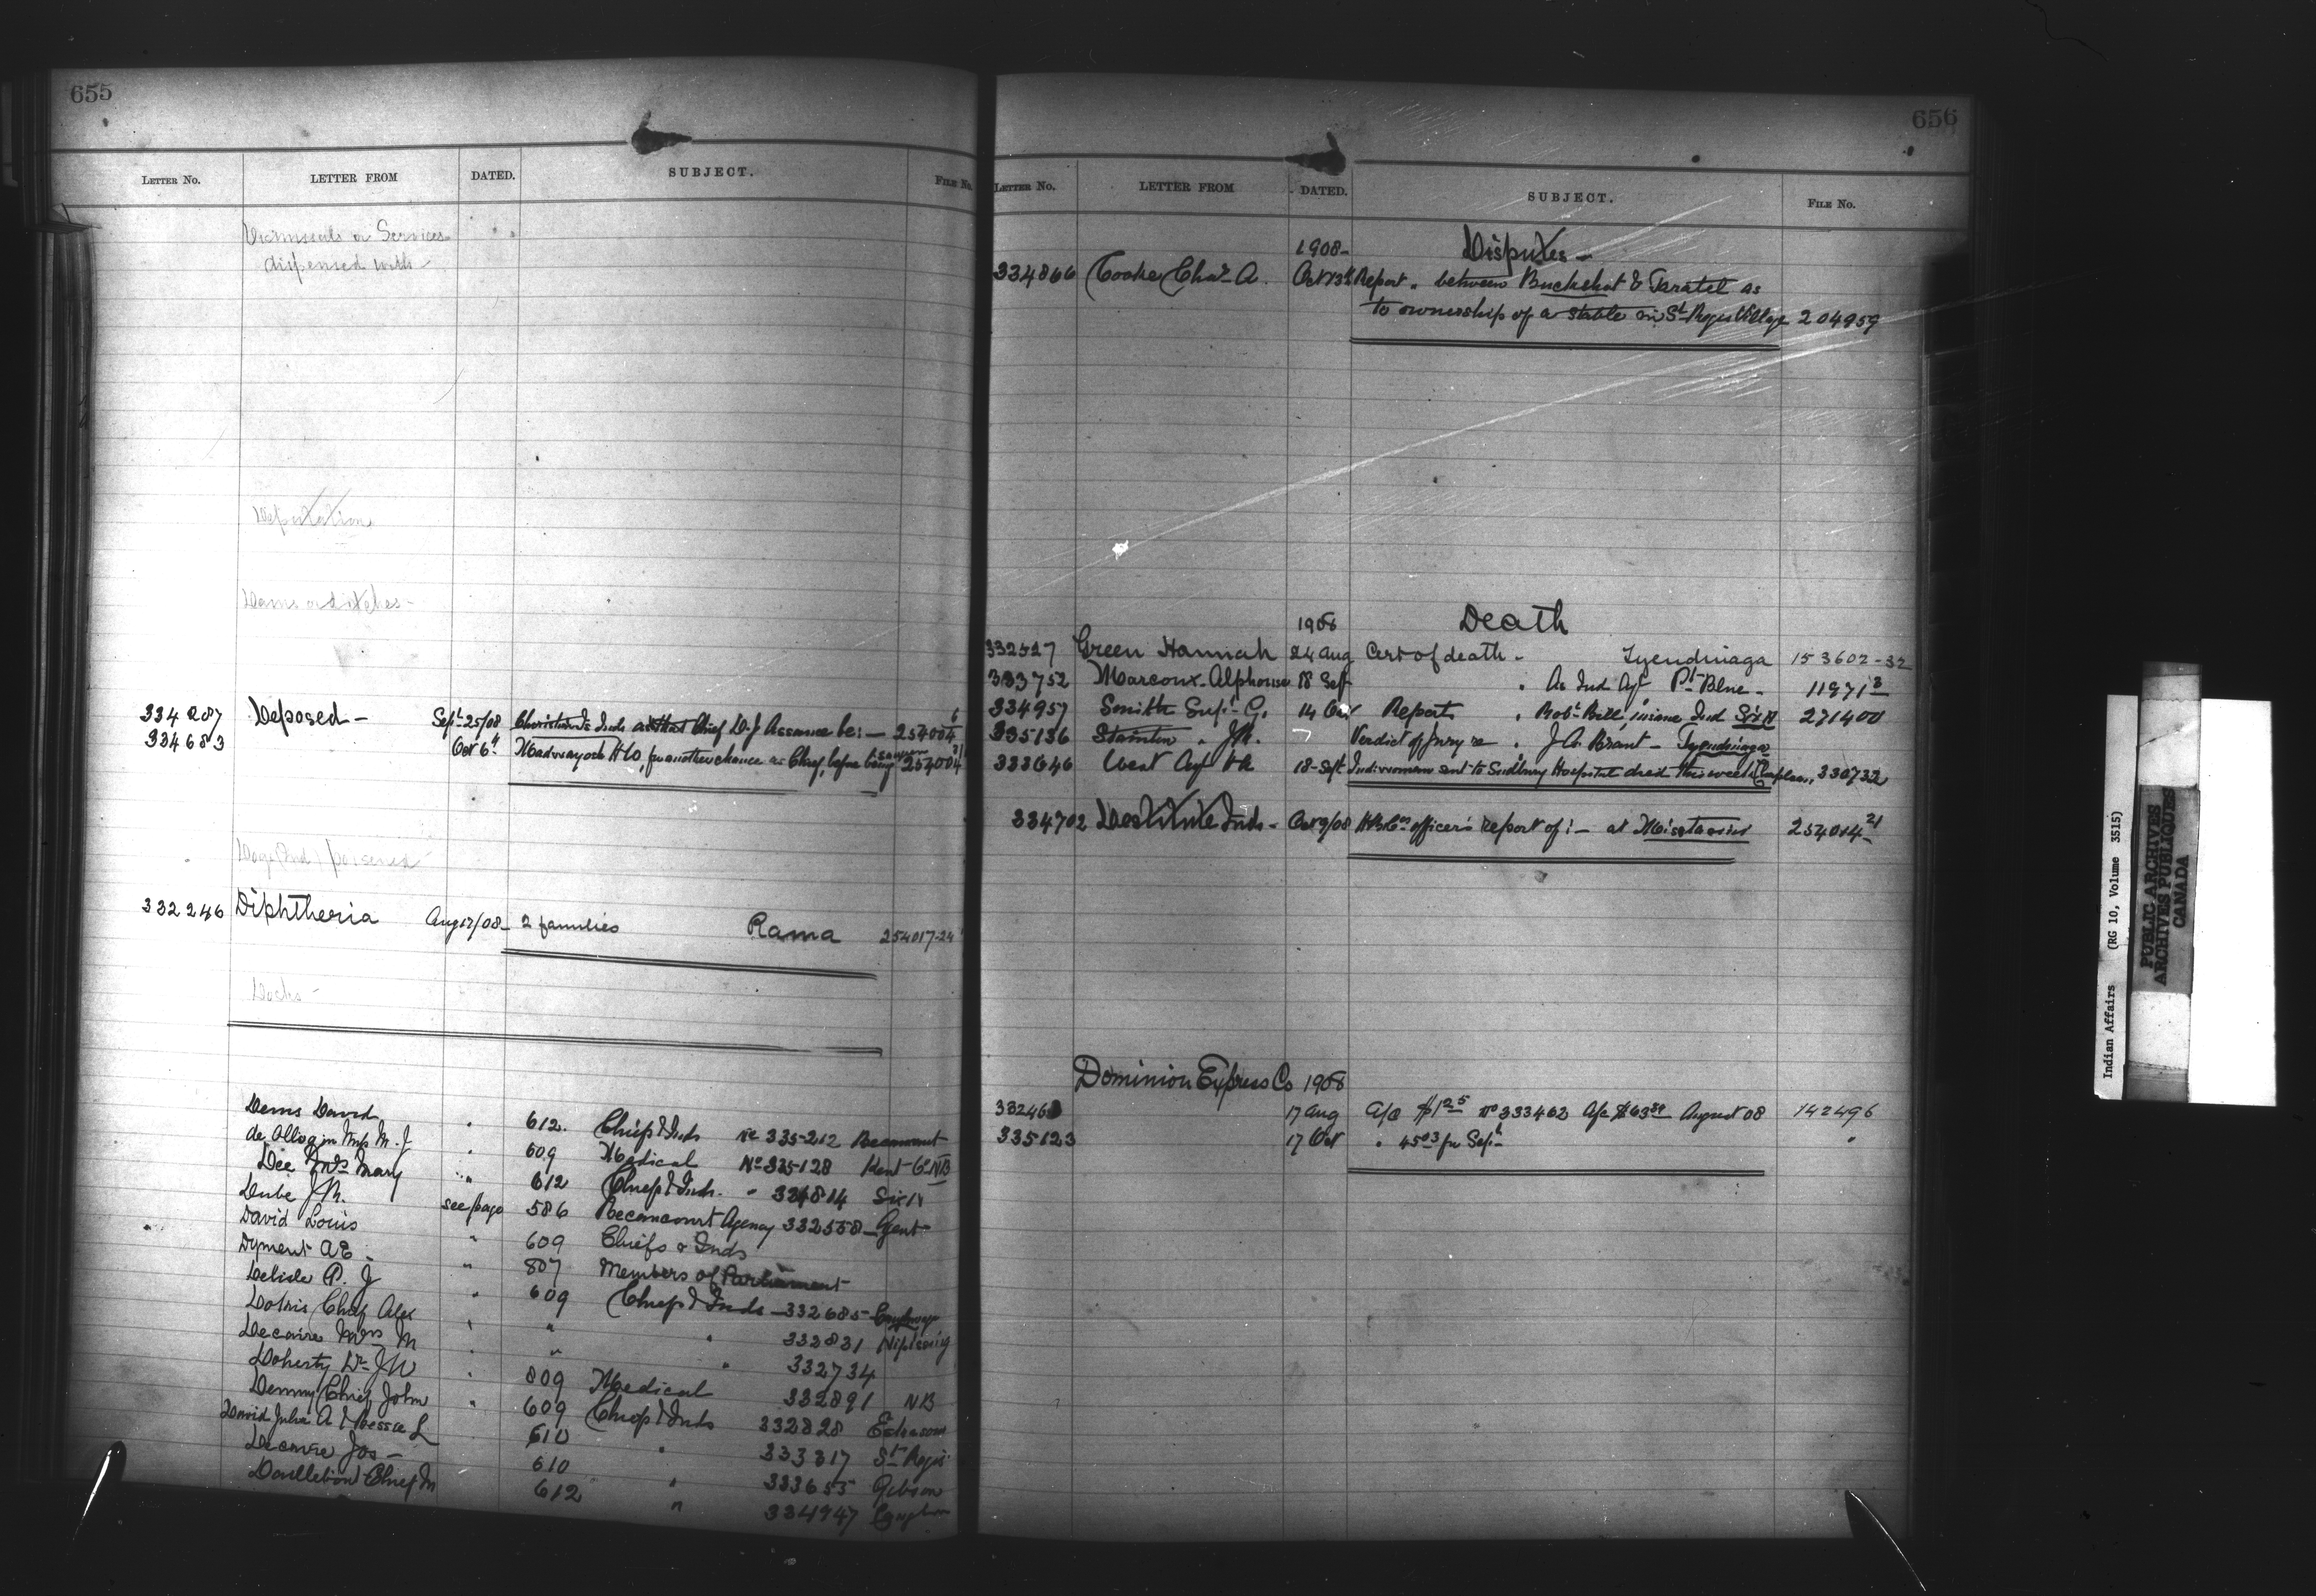 655
LETTER No. LETTER FROM DATED. SUBJECT. FILE No.
Dismissals or Services
dispensed with
Deputation
Dams or ditches -
334287 Deposed - Sept 25/08 Christian Is Inds ask that Chief D. J Assance be: - 254004 6
334683 Oct 6th H W, for another chance as Chief, before being 254004
Dogs (Ind) poisened
332246 Diphtheria Aug 17/08 - 2 families Rama 254017-24
Docks -
Dems David " 612. Chief & Inds re 335212
de Olloqui Mrs M. J. 609 Medical No 335128 Kent Co NB
Dee Mrs Mary " 612 Chief & Inds. " 334814 Six N
Dube J. M. see page 586 Becancourt Agency 332558 - Gent
David Louis " 609 Chiefs & Inds
Dyment A E - " 807 Members of Parliament
Delisle P. J " 609 Chief & Inds - 332685 - Caughnaga
Dokis Chief Alex " " " 332831 Nipissing
Decaire Mrs M " " " 332734
Doherty Dr J W " 809 Medical 332891 NB
Denny Chief John " 609 Chief & Inds 332828 Eskasoni
David Julia A & Bessie L 610 " 333317 St Regis
Decaire Jos - 610 " 333655 Gibson
Chief M 612 " 334947
656
LETTER No. LETTER FROM DATED. SUBJECT. FILE No.
1908 - Disputes -
334866 Cooke Chas. A. Oct 13th Report " between Buckshot & Taratel as
to ownership of a stable in St. Regis Village 204959
1908 Death
332527 Green Hannah 24 Aug Cert of death - Tyendinaga 153602-32
333752 Marcoux Alphonse 18 Sept " As Ind Agt Pt Blue - 11971 3
334957 Smith Supt. G. 14 Oct Reports " Robt. Bill, insane Ind Six N 271400
335136 Stainton " J M. 7 Verdict of Jury re " J. A. Brant - Tyendinaga
333646 West Agt 18 - Sept Ind. woman sent to Sudbury Hospital died this week 330732
334702 Destitute Inds - Oct 9/08 H B Co's officer's report of: - at Mistassini 254014 - 21
Dominion Express Co 1908
33246 17 Aug a/c $1 25 No 333463 a/c $63 89 August 08 142496
335123 17 Oct " 45 03 for Sept "
Indian Affairs (RG 10, Volume 3515)
PUBLIC ARCHIVES
ARCHIVES PUBLIQUES
CANADA